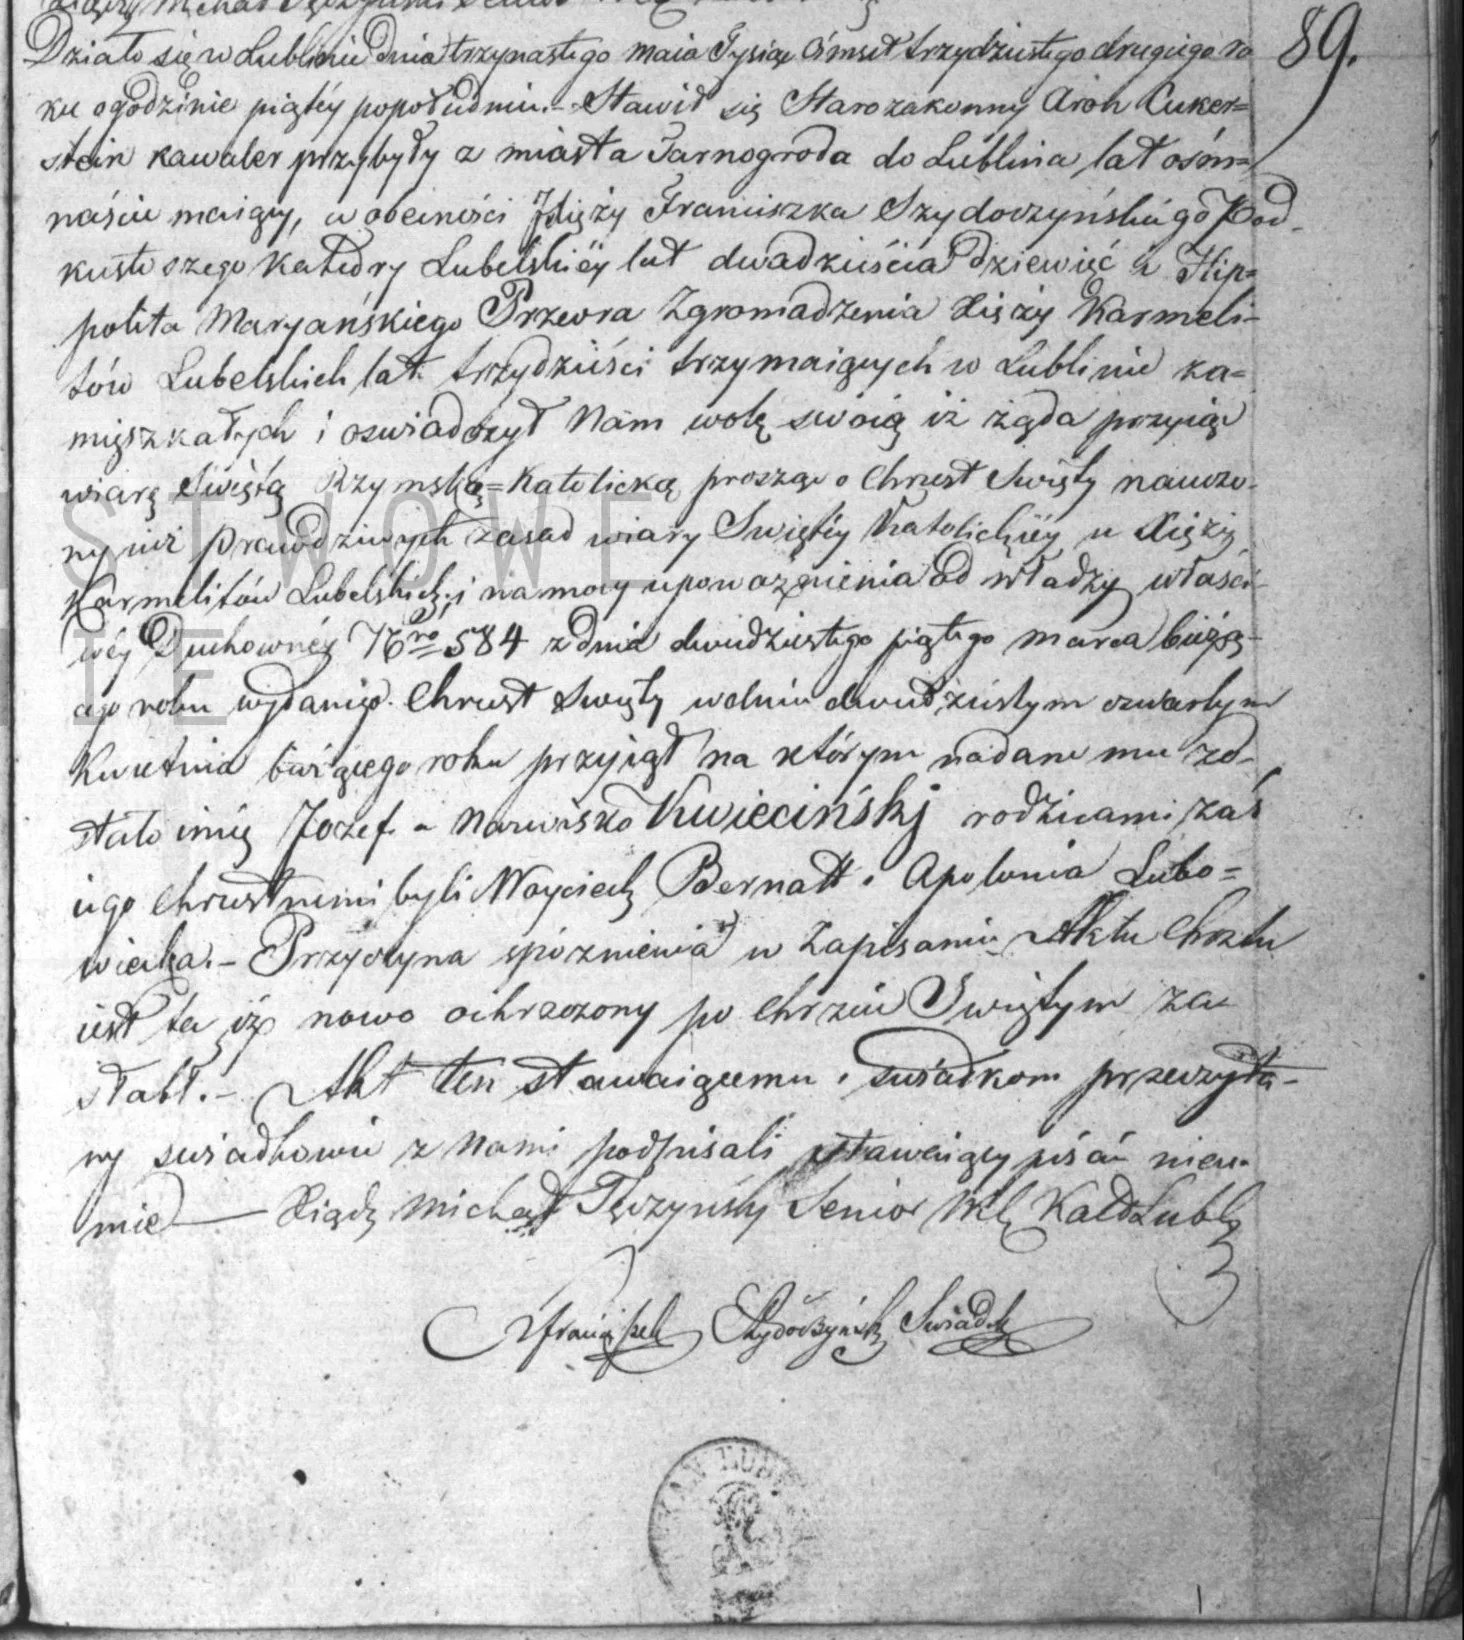 Działo się w Lublinie dnia trzynastego maia Tysiąc Ośmset trzydziestego drugiego ro 89.
ku o godzinie piątéy popołudniu.- Stawił się Starozakonny Aron Cuker=
stein kawaler przybyły z miasta Tarnogroda do Lublina lat ośm=
naście maiący, w obecności Xięży Franciszka Szydoczyńskiego Pod-
kustoszego Katedry Lubelskiéy lat dwadzieścia dziewięć i Hip=
polita Maryańskiego Przeora Zgromadzenia Xięży Karmeli-
tów Lubelskich lat trzydzieści trzy maiących w Lublinie za=
mięszkałych i oswiadczył Nam wolę swoią iż żąda przyiąć
wiarę Swiętą Rzymską=Katolicką prosząc o Chrzest Swięty nauczo-
ny iuż prawdziwych zasad wiary Swiętéy Katolickiéy u Xięży
Karmelitów Lubelskich, i na mocy upoważnienia od władzy właści-
wéy Duchownéy Nro 584 z dnia dwudziestego piątego marca bieżą-
cego roku wydanego. Chrzest Swięty w dniu dwudziestym czwartym
Kwietnia bieżącego roku przyiął na którym nadane mu zo-
stało imię Jozef - a Nazwisko Kwieciński rodzicami zaś
iego chrzestnemi byli Woyciech Bernatt i Apolonia Lubo=
wiecka.- Przyczyna spóznienia w Zapisaniu Aktu Chrztu
iest ta iż nowo ochrzczony po Chrzcie Swiętym za
słabł.- Akt ten stawaiącemu i swiadkom przeczyta-
ny swiadkowie z Nami podpisali stawaiący pisać nieu-
mie Xiądz Michał Tęczyński Senior Wkł Kated Lubl
Franciszek Szydoczyński Swiadek